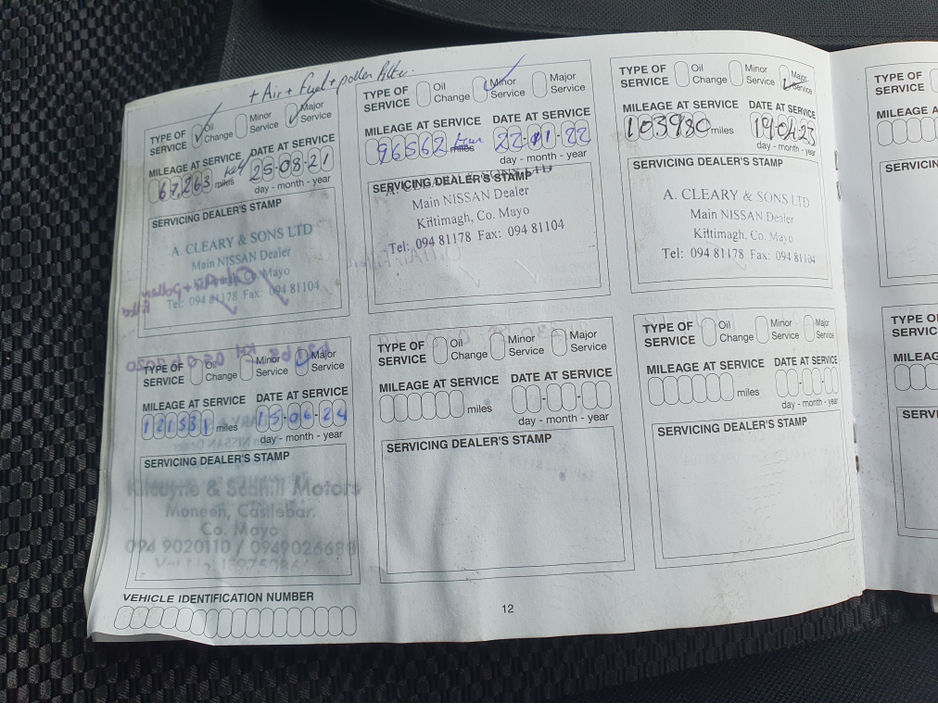 + Air + Fuel + pollen filter.
TYPE OF SERVICE Oil Change Minor Service Major Service
MILEAGE AT SERVICE DATE AT SERVICE
67,263 miles KM 25-08-21
day - month - year
SERVICING DEALER'S STAMP
A. CLEARY & SONS LTD
Main NISSAN Dealer
Mayo
Tel: 094 81178 Fax: 094 81104
TYPE OF SERVICE Oil Change Minor Service Major Service
MILEAGE AT SERVICE DATE AT SERVICE
96562 miles 22-01-22
day - month - year
SERVICING DEALER'S STAMP
Main NISSAN Dealer
Kiltimagh, Co. Mayo
Tel: 094 81178 Fax: 094 81104
TYPE OF SERVICE Oil Change Minor Service Major Service
MILEAGE AT SERVICE DATE AT SERVICE
103980 miles 19-04-23
day - month - year
SERVICING DEALER'S STAMP
A. CLEARY & SONS LTD
Main NISSAN Dealer
Kiltimagh, Co. Mayo
Tel: 094 81178 Fax: 094 81104
TYPE OF SERVICE Oil Change Minor Service Major Service
MILEAGE AT SERVICE DATE AT SERVICE
121531 miles 15-06-24
day - month - year
SERVICING DEALER'S STAMP
& Motors
Moneen, Castlebar.
Co. Mayo
094 9020110 / 0949026688
TYPE OF SERVICE Oil Change Minor Service Major Service
MILEAGE AT SERVICE DATE AT SERVICE
miles
day - month - year
SERVICING DEALER'S STAMP
TYPE OF SERVICE Oil Change Minor Service Major Service
MILEAGE AT SERVICE DATE AT SERVICE
miles
day - month - year
SERVICING DEALER'S STAMP
VEHICLE IDENTIFICATION NUMBER
12
TYPE OF SERVICE
MILEAGE A
SERVICIN
TYPE OF SERVICE
MILEAG
SERVI